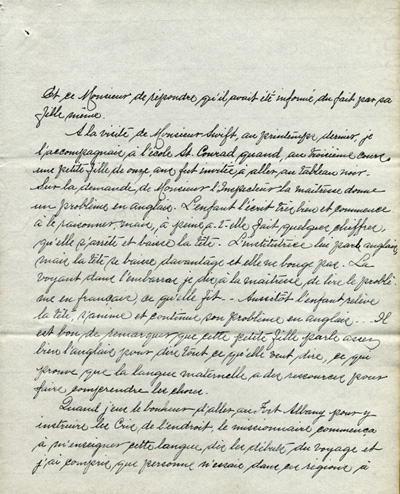 Et ce Monsieur de répondre qu'il avait été informé du fait par sa
fille même.
A la visite de Monsieur Swift, au printemps dernier, je
l'accompagnais à l'école St. Conrad quand, au troisième cours
une petite fille de onze ans fut invitée à aller, au tableau noir.
Sur la demande, de Monsieur l'Inspecteur la maîtresse donne
un problème en anglais. L'enfant l'écrit très bien et commence
à le raisonner, mais, à peine a-t-elle fait quelques chiffres
qu'elle s'arrête et baisse la tête. L'institutrice lui parle anglais,
mais la tête se baisse davantage et elle ne bouge pas. La
voyant dans l'embarras je dis à la maîtresse, de lire le problè-
me en français, ce qu'elle fit. - Aussitôt l'enfant relève
la tête, s'anime et continue son problème en anglais... Il
est bon de remarquer que cette petite fille parle assez
bien l'anglais pour dire tout ce qu'elle veut dire, ce qui
prouve que la langue maternelle a des ressources pour
faire comprendre les choses.
Quand j'eus le bonheur d'aller au Fort Albany pour y
instruire les Cris de l'endroit, le missionnaire commença
à m'enseigner cette langue, dès les débuts du voyage et
j'ai compris que personne n'essaie dans ces régions à